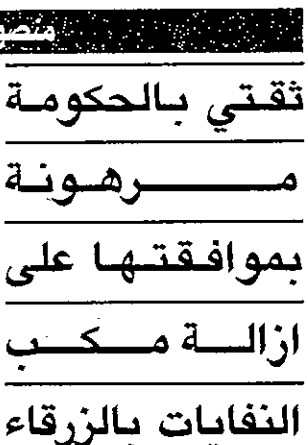 ثقتي بالحكومة
مرهونة
بموافقتها على
ازالة مكب
النفايات بالزرقاء